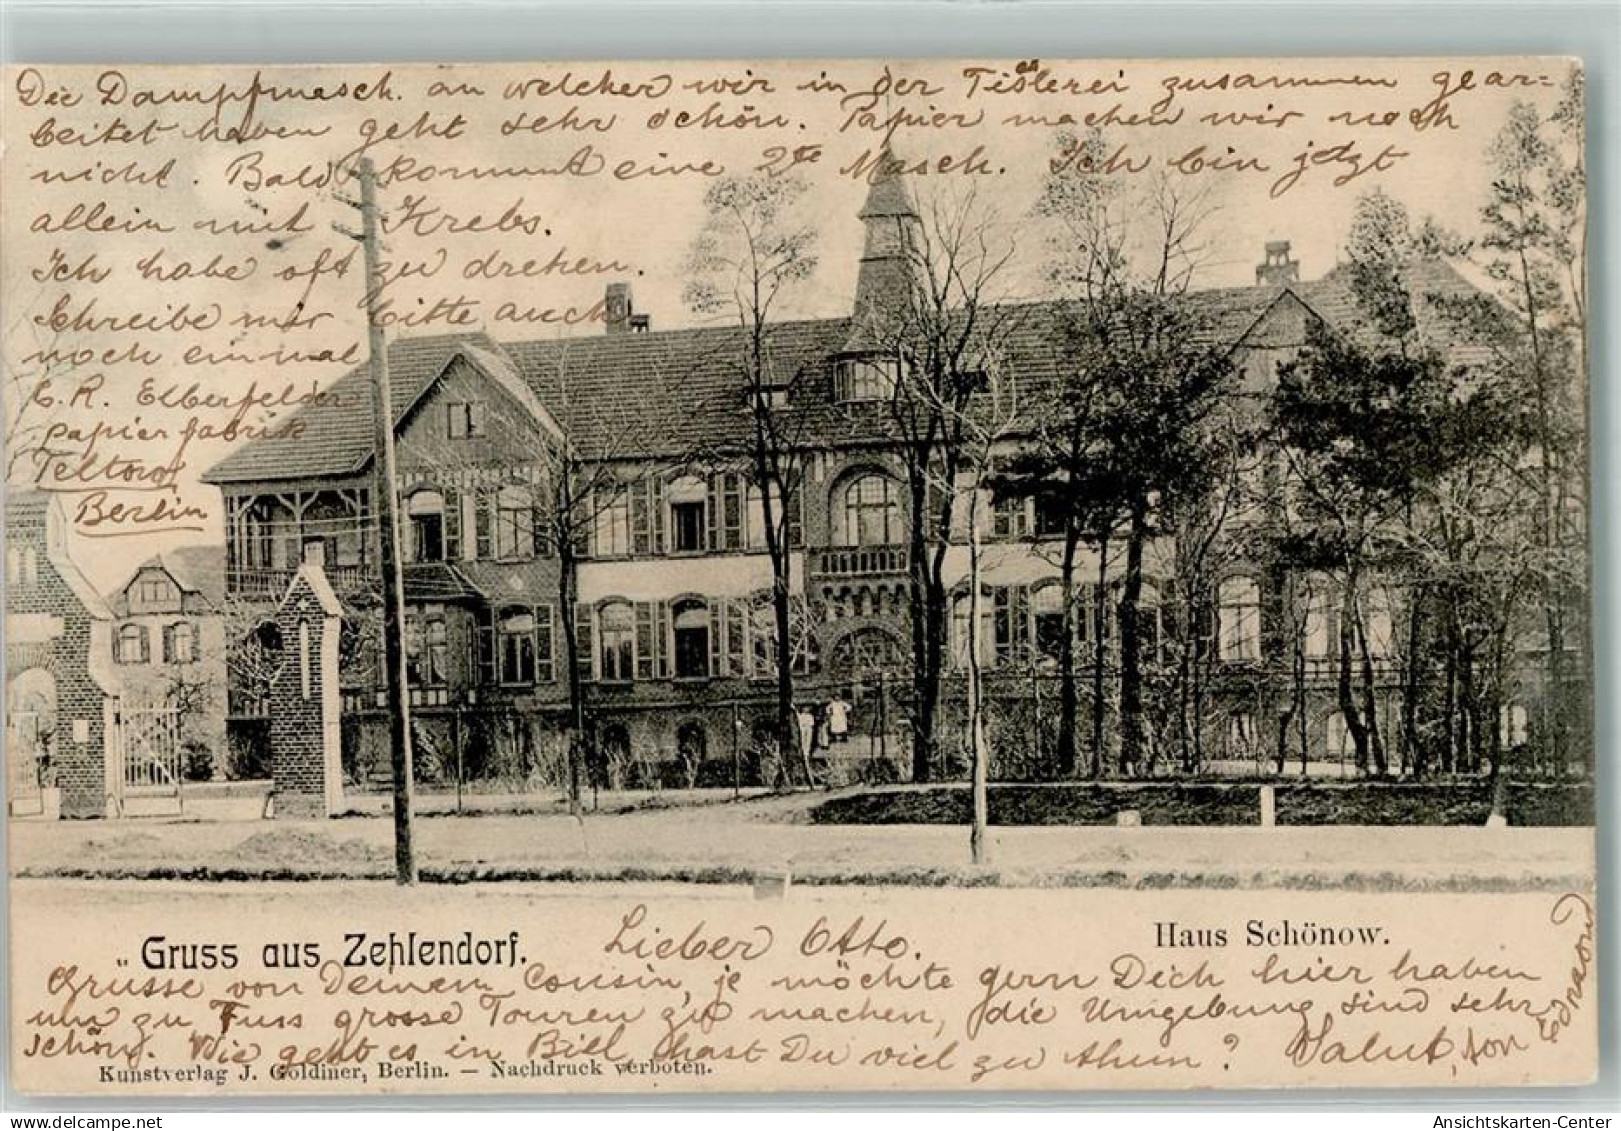 Die Dampfmasch. an welcher wir in der Tislerei zusammen gear=
beitet haben geht sehr schön. Papier machen wir noch
nicht. Bald kommt eine 2te Masch. Ich bin jetzt
allein mit Krebs.
Ich habe oft zu drehen.
Schreibe mir bitte auch
noch einmal
E. R. Elberfelder
papierfabrik
Teltow
Berlin
Gruss aus Zehlendorf.
Lieber Otto.
Haus Schönow.
Grüsse von Deinem Cousin, je möchte gern Dich hier haben
um zu Fuss grosse Touren zu machen, die Umgebung sind sehr
schön. Wie geht es in Biel, hast Du viel zu thun? Salut, ton Edmond
Kunstverlag J. Goldiner, Berlin. — Nachdruck verboten.
oldthing.com
Ansichtskarten-Center